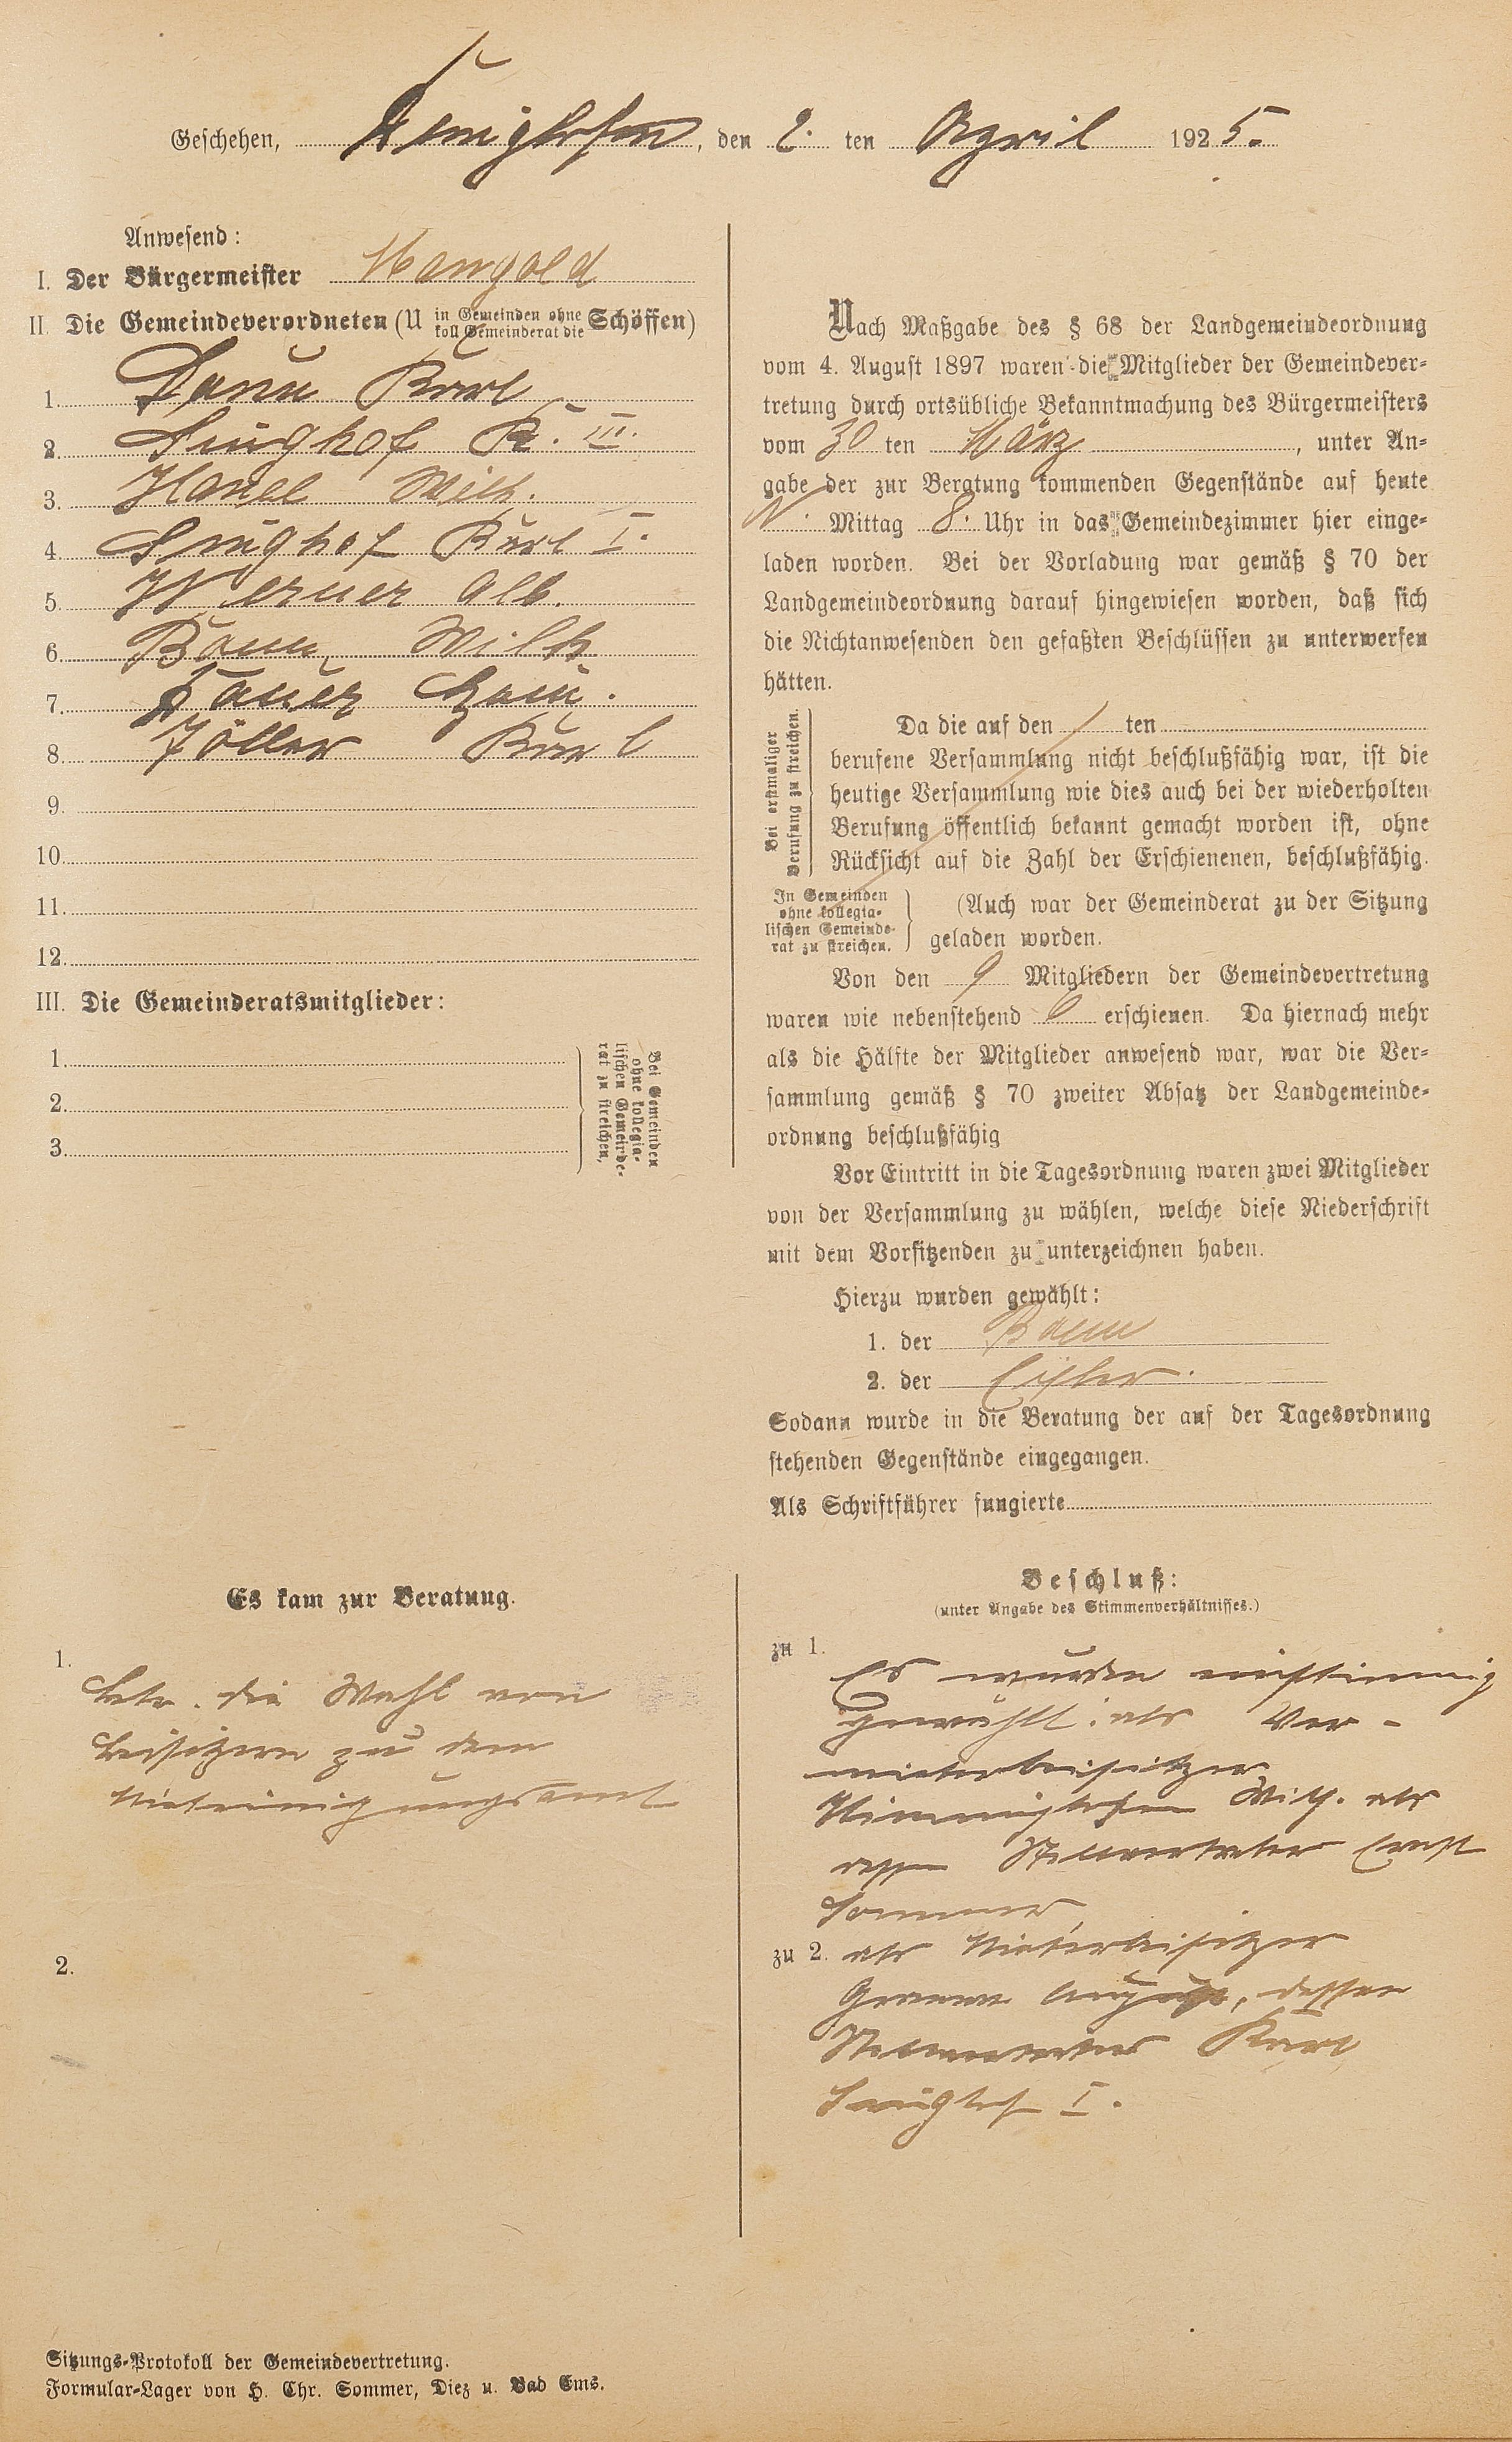 Geschehen, Kemighofen, den 2. ten April 1925.
Anwesend:
I. Der Bürgermeister Mangold
II. Die Gemeindeverordneten (U in Gemeinden ohne koll Gemeinderat die Schöffen)
1. Karl
2. Singhof K. III.
3. Wilh.
4. Singhof Karl I.
5. Werner Alb.
6. Baum Wilh
7.
8. Zöller Karl
9.
10.
11.
12.
III. Die Gemeinderatsmitglieder:
1.
2.
3.
Bei Gemeinden
ohne kollegia-
lischen Gemeinde-
rat zu streichen,
Nach Maßgabe des § 68 der Landgemeindeordnung
vom 4. August 1897 waren die Mitglieder der Gemeindever-
tretung durch ortsübliche Bekanntmachung des Bürgermeisters
vom 30 ten März, unter An-
gabe der zur Beratung kommenden Gegenstände auf heute
N. Mittag 8. Uhr in das Gemeindezimmer hier einge-
laden worden. Bei der Vorladung war gemäß § 70 der
Landgemeindeordnung darauf hingewiesen worden, daß sich
die Nichtanwesenden den gefaßten Beschlüssen zu unterwerfen
hätten.
Bei erstmaliger
Berufung zu streichen.
Da die auf den ten
berufene Versammlung nicht beschlußfähig war, ist die
heutige Versammlung wie dies auch bei der wiederholten
Berufung öffentlich bekannt gemacht worden ist, ohne
Rücksicht auf die Zahl der Erschienenen, beschlußfähig.
In Gemeinden
ohne kollegia-
lischen Gemeinde-
rat zu streichen.
(Auch war der Gemeinderat zu der Sitzung
geladen worden.
Von den 9 Mitgliedern der Gemeindevertretung
waren wie nebenstehend erschienen. Da hiernach mehr
als die Hälfte der Mitglieder anwesend war, war die Ver-
sammlung gemäß § 70 zweiter Absatz der Landgemeinde-
ordnung beschlußfähig
Vor Eintritt in die Tagesordnung waren zwei Mitglieder
von der Versammlung zu wählen, welche diese Niederschrift
mit dem Vorsitzenden zu unterzeichnen haben.
Hierzu wurden gewählt:
1. der Baum
2. der
Sodann wurde in die Beratung der auf der Tagesordnung
stehenden Gegenstände eingegangen.
Als Schriftführer fungierte
Es kam zur Beratung.
1.
betr. die Wahl von
Beisitzern zu dem
Mieteinigungsamt
2.
Beschluß:
(unter Angabe des Stimmenverhältnisses.)
zu 1.
Es wurden einstimmig
gewählt: als Ver-
mieterbeisitzer
Wilh. als
dessen Stellvertreter Ernst
Sommer,
zu 2. als Mieterbeisitzer
August, dessen
Stellvertreter Karl
Singhof I.
Sitzungs-Protokoll der Gemeindevertretung.
Formular-Lager von H. Chr. Sommer, Diez u. Bad Ems.